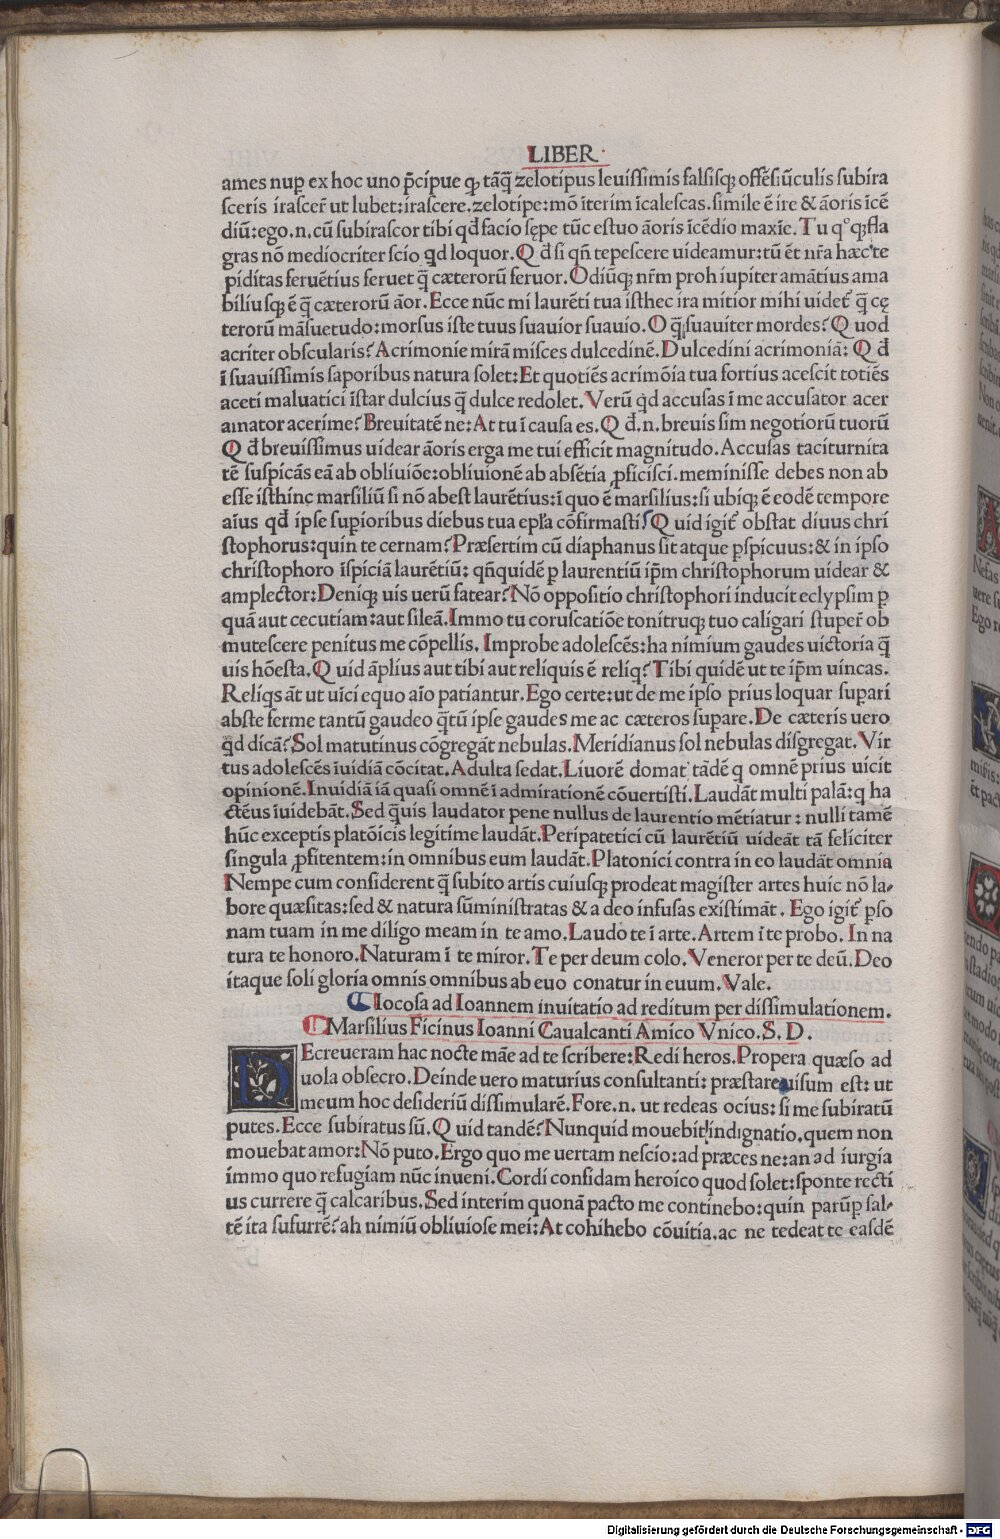 LIBER
ames nuꝑ ex hoc uno p̄cipue ꝙ tāq̄ zelotipus leuissimis falsisqꝫ offēsiūculis subira
sceris irascer̄ ut lubet:irascere.zelotipe:mō īterim īcalescas.simile ē ire & āoris īcē
diū:ego.n.cū subirascor tibi qd̄ facio sępe tūc estuo āoris īcēdio maxīe.Tu qºqꝫ fla
gras nō mediocriter scio qd loquor.Q d̄ si qn̄ tepescere uideamur:tū ēt nr̄a hæc te
piditas feruētius feruet q̄ cæterorū feruor.Odiūqꝫ nr̄m proh iupiter amātius ama
biliusqꝫ ē q̄ cæterorū āor.Ecce nūc mi laurēti tua isthec ira mitior mihi uidet̄ q̄ cę
terorū māsuetudo:morsus iste tuus suauior suauio.O q̄ suauiter mordes?Q uod
acriter obscularis?Acrimonie mirā misces dulcedinē.Dulcedini acrimoniā: Q d̄
ī suauissimis saporibus natura solet:Et quotiēs acrimōia tua fortius acescit totiēs
aceti maluatici īstar dulcius q̄ dulce redolet.Verū qd accusas ī me accusator acer
amator acerime?Breuitatē ne:At tu ī causa es.Q d̄.n.breuis sim negotiorū tuorū
Q d̄ breuissimus uidear āoris erga me tui efficit magnitudo.Accusas taciturnita
tē suspicās eā ab obliuiōe:obliuionē ab absētia ꝓficisci.meminisse debes non ab
esse isthinc marsiliū si nō abest laurētius:ī quo ē marsilius:si ubiqꝫ ē eodē tempore
aīus qd̄ ipse suꝑioribus diebus tua epl̄a cōfirmasti?Q uid igit̄ obstat diuus chri
stophorus:quin te cernam?Præsertim cū diaphanus sit atque ꝑspicuus:& in ipso
christophoro īspiciā laurētiū: qn̄quidē ꝑ laurentiū ip̄m christophorum uidear &
amplector:Deniqꝫ uis uerū fatear?Nō oppositio christophori inducit eclypsim ꝑ
quā aut cecutiam:aut sileā.Immo tu coruscatiōe tonitruqꝫ tuo caligari stuper̄ ob
mutescere penitus me cōpellis.Improbe adolescēs:ha nimium gaudes uictoria q̄
uis hōesta.Q uid āplius aut tibi aut reliquis ē reliq?Tibi quidē ut te ip̄m uincas.
Reliqs āt ut uīci equo aīo patiantur.Ego certe:ut de me ipso prius loquar suꝑari
abste ferme tantū gaudeo q̄tū ipse gaudes me ac cæteros suꝑare.De cæteris uero
qd dicā?Sol matutinus cōgregāt nebulas.Meridianus sol nebulas disgregat.Vir
tus adolescēs īuidiā cōcitat.Adulta sedat.Liuorē domat tādē q omnē prius uicit
opinionē.Inuidiā iā quasi omnē ī admirationē cōuertisti.Laudāt multi palā:q ha
ctēus īuidebāt.Sed q̄uis laudator pene nullus de laurentio mētiatur: nulli tamē
hūc exceptis platōicis legitime laudāt.Peripatetici cū laurētiū uideāt tā feliciter
singula ꝓfitentem:in omnibus eum laudāt.Platonici contra in eo laudāt omnia
Nempe cum considerent q̄ subito artis cuiusqꝫ prodeat magister artes huic nō la-
bore quæsitas:sed & natura sūministratas & a deo infusas existimāt. Ego igit̄ ꝑso
nam tuam in me diligo meam in te amo.Laudo te ī arte.Artem ī te probo. In na
tura te honoro.Naturam ī te miror.Te per deum colo.Veneror per te deū.Deo
itaque soli gloria omnis omnibus ab euo conatur in euum.Vale.
Iocosa ad Ioannem inuitatio ad reditum per dissimulationem.
Marsilius Ficinus Ioanni Caualcanti Amico Vnico.S.D.
DEcreueram hac nocte māe ad te scribere:Redi heros.Propera quæso ad
uola obsecro.Deinde uero maturius consultanti: præstare uisum est: ut
meum hoc desideriū dissimularē.Fore.n. ut redeas ocius: si me subiratū
putes.Ecce subiratus sū.Q uid tandē?Nunquid mouebit indignatio,quem non
mouebat amor:Nō puto.Ergo quo me uertam nescio:ad præces ne:an ad iurgia
immo quo refugiam nūc inueni.Cordi confidam heroico quod solet:sponte recti
us currere q̄ calcaribus.Sed interim quonā pacto me continebo:quin parūꝑ sal-
tē ita susurrē?ah nimiū obliuiose mei:At cohihebo cōuitia.ac ne tedeat te easdē
Digitalisierung gefördert durch die Deutsche Forschungsgemeinschaft - DFG